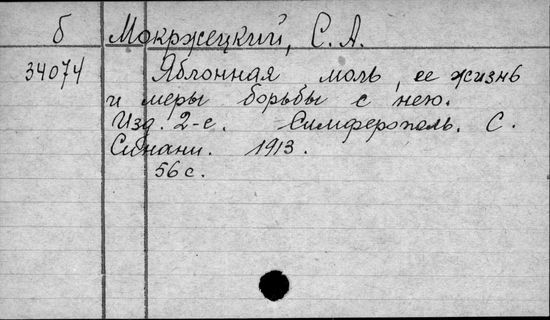 б Мокржецкий, С. А.
34074 Яблонная моль, ее жизнь
и меры борьбы с нею.
Изд. 2-е. Симферополь. С.
Синани. 1913.
56 с.